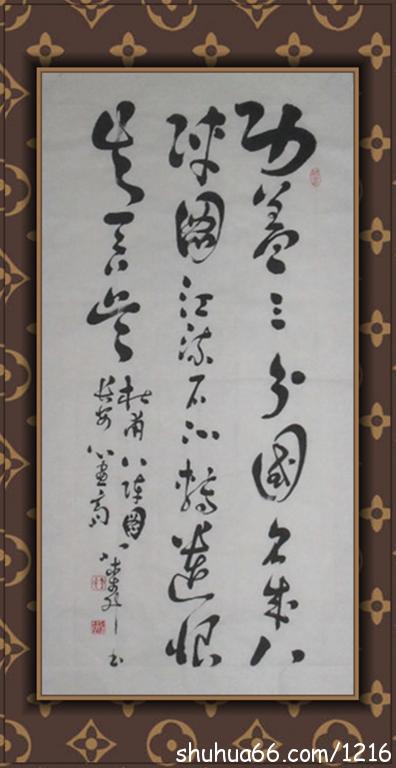 功盖三分國名成八
陣圖江流石不轉遺恨
失吞吴
杜甫八陣圖
長安
书
shuhua66.com/1216